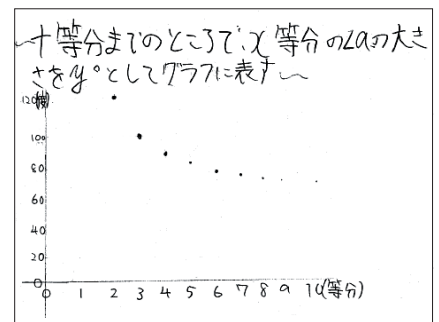 〜十等分までのところで、x等分の∠aの大き
さをy°としてグラフに表す〜
120(度)
100
80
60
40
20
0
0 1 2 3 4 5 6 7 8 9 10(等分)